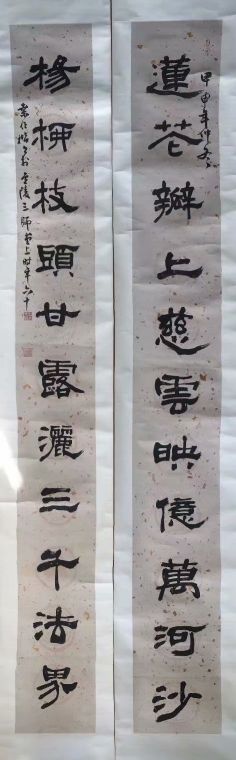 蓮花瓣上慈雲映億萬河沙
甲申年仲冬
楊柳枝頭甘露灑三千法界
金陵三師堂上時年六十